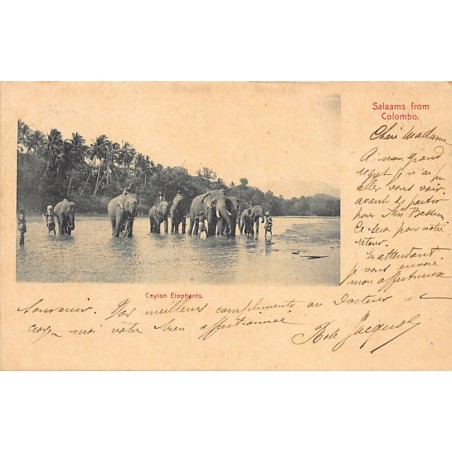 Salaams from
Colombo.
Chère Madame
A mon grand
regret je n'ai pu
aller vous voir
avant le départ
pour
Ce sera pour le
retour.
En attendant
je vous envoie
mon affectueux
Ceylon Elephants.
Souvenir. Vos meilleurs compliments au Docteur et
croyez moi votre bien affectionné